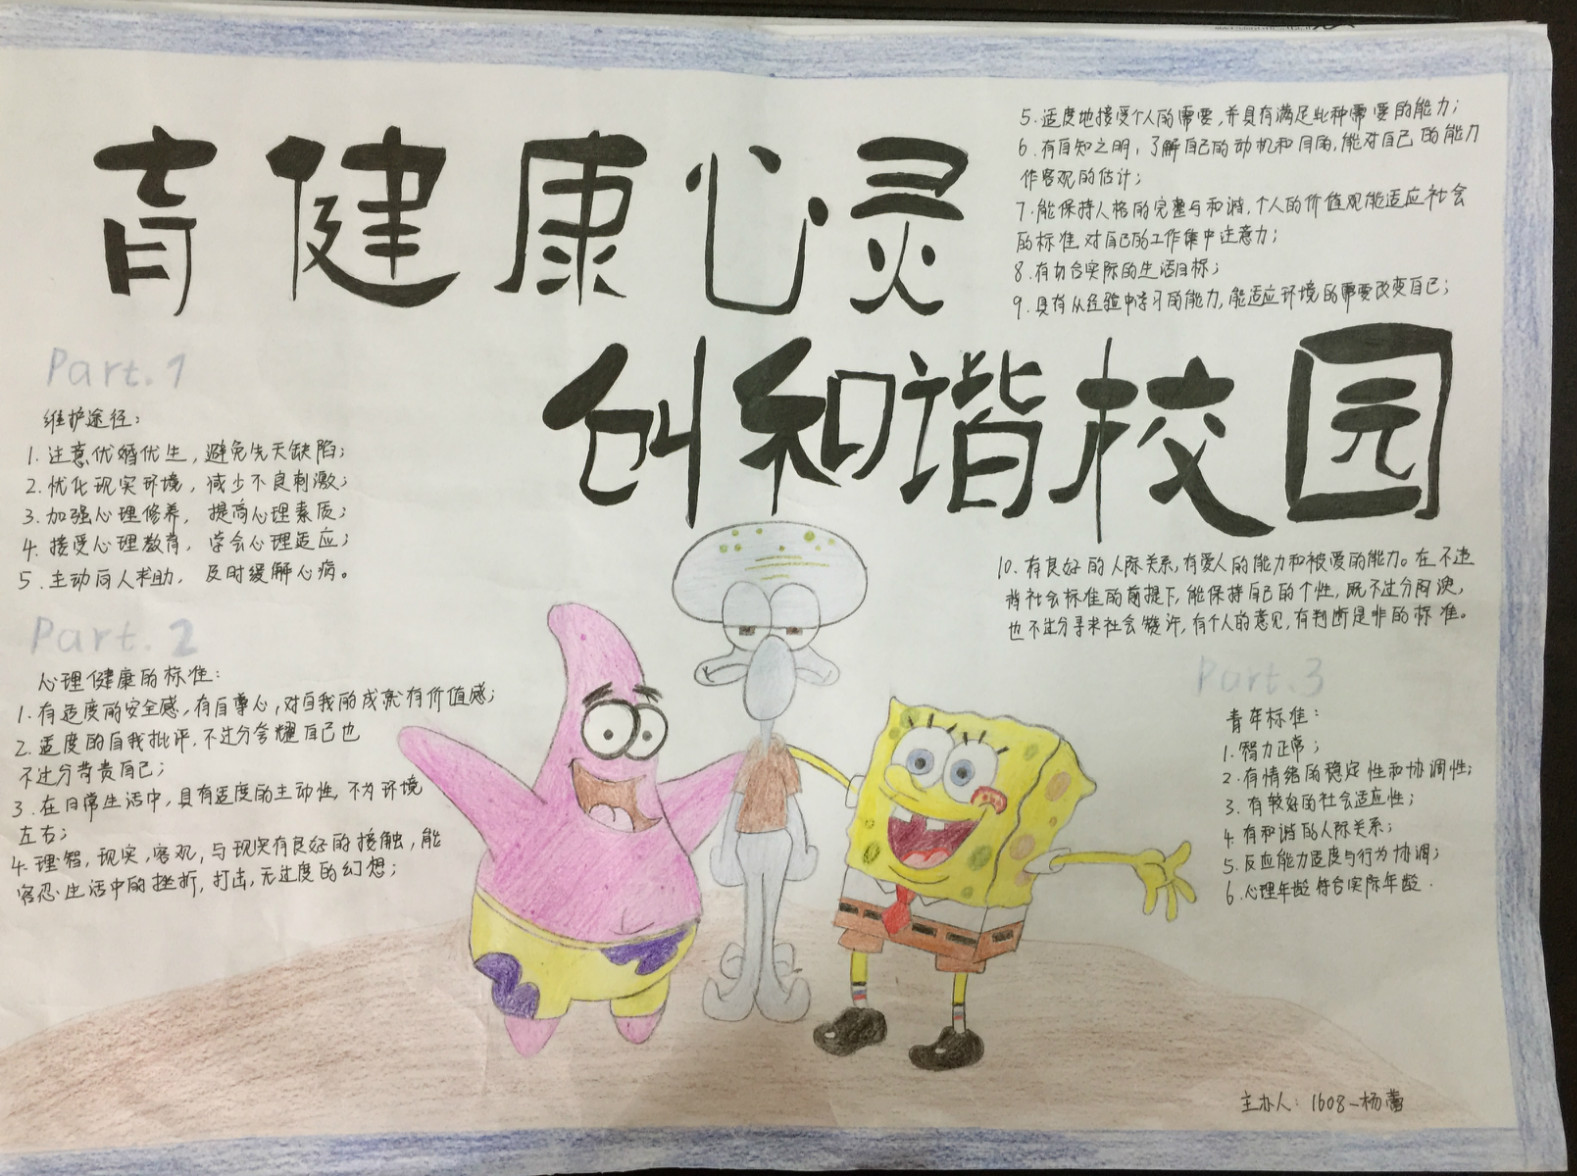 育健康心灵
创和谐校园
Part.1
维护途径:
1.注意优婚优生,避免先天缺陷;
2.优化现实环境,减少不良刺激;
3.加强心理修养,提高心理素质;
4.接受心理教育,学会心理适应;
5.主动向人求助,及时缓解心病。
Part.2
心理健康的标准:
1.有适度的安全感,有自尊心,对自我的成就有价值感;
2.适度的自我批评,不过分夸耀自己也
不过分苛责自己;
3.在日常生活中,具有适度的主动性,不为环境
左右;
4.理智,现实,客观,与现实有良好的接触,能
容忍生活中的挫折,打击,无过度的幻想;
5.适度地接受个人的需要,并具有满足此种需要的能力;
6.有自知之明,了解自己的动机和目的,能对自己的能力
作客观的估计;
7.能保持人格的完整与和谐,个人的价值观能适应社会
的标准,对自己的工作集中注意力;
8.有切合实际的生活目标;
9.具有从经验中学习的能力,能适应环境的需要改变自己;
10.有良好的人际关系,有爱人的能力和被爱的能力。在不违
背社会标准的前提下,能保持自己的个性,既不过分阿谀,
也不过分寻求社会赞许,有个人的意见,有判断是非的标准。
Part.3
青年标准:
1.智力正常;
2.有情绪的稳定性和协调性;
3.有较好的社会适应性;
4.有和谐的人际关系;
5.反应能力适度与行为协调;
6.心理年龄符合实际年龄.
主办人:1608-杨蕾